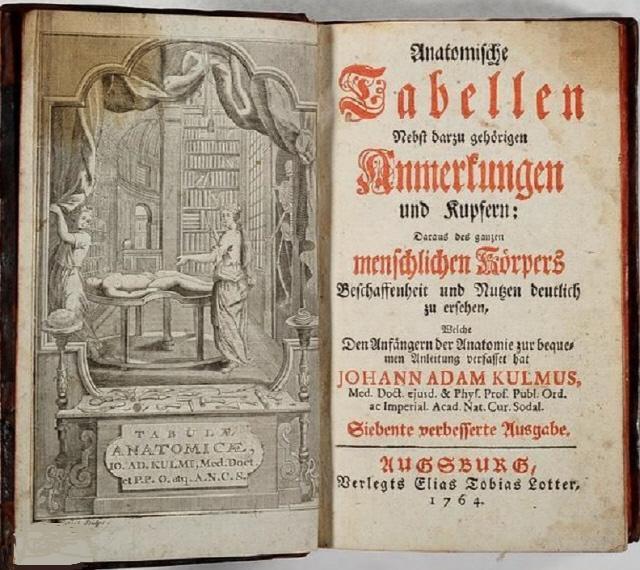 TABULÆ
ANATOMICÆ,
IO. AD. KULMI, Med. Doct.
et P.P.O. atq. A.N.C.S.
Anatomische
Tabellen
Nebst darzu gehörigen
Anmerkungen
und Kupfern:
Daraus des ganzen
menschlichen Körpers
Beschaffenheit und Nutzen deutlich
zu ersehen,
Welche
Den Anfängern der Anatomie zur beque-
men Anleitung verfasset hat
JOHANN ADAM KULMUS,
Med. Doct. ejusd. & Phys. Prof. Publ. Ord.
ac Imperial. Acad. Nat. Cur. Sodal.
Siebente verbesserte Ausgabe.
AUGSBURG,
Verlegts Elias Tobias Lotter,
1764.